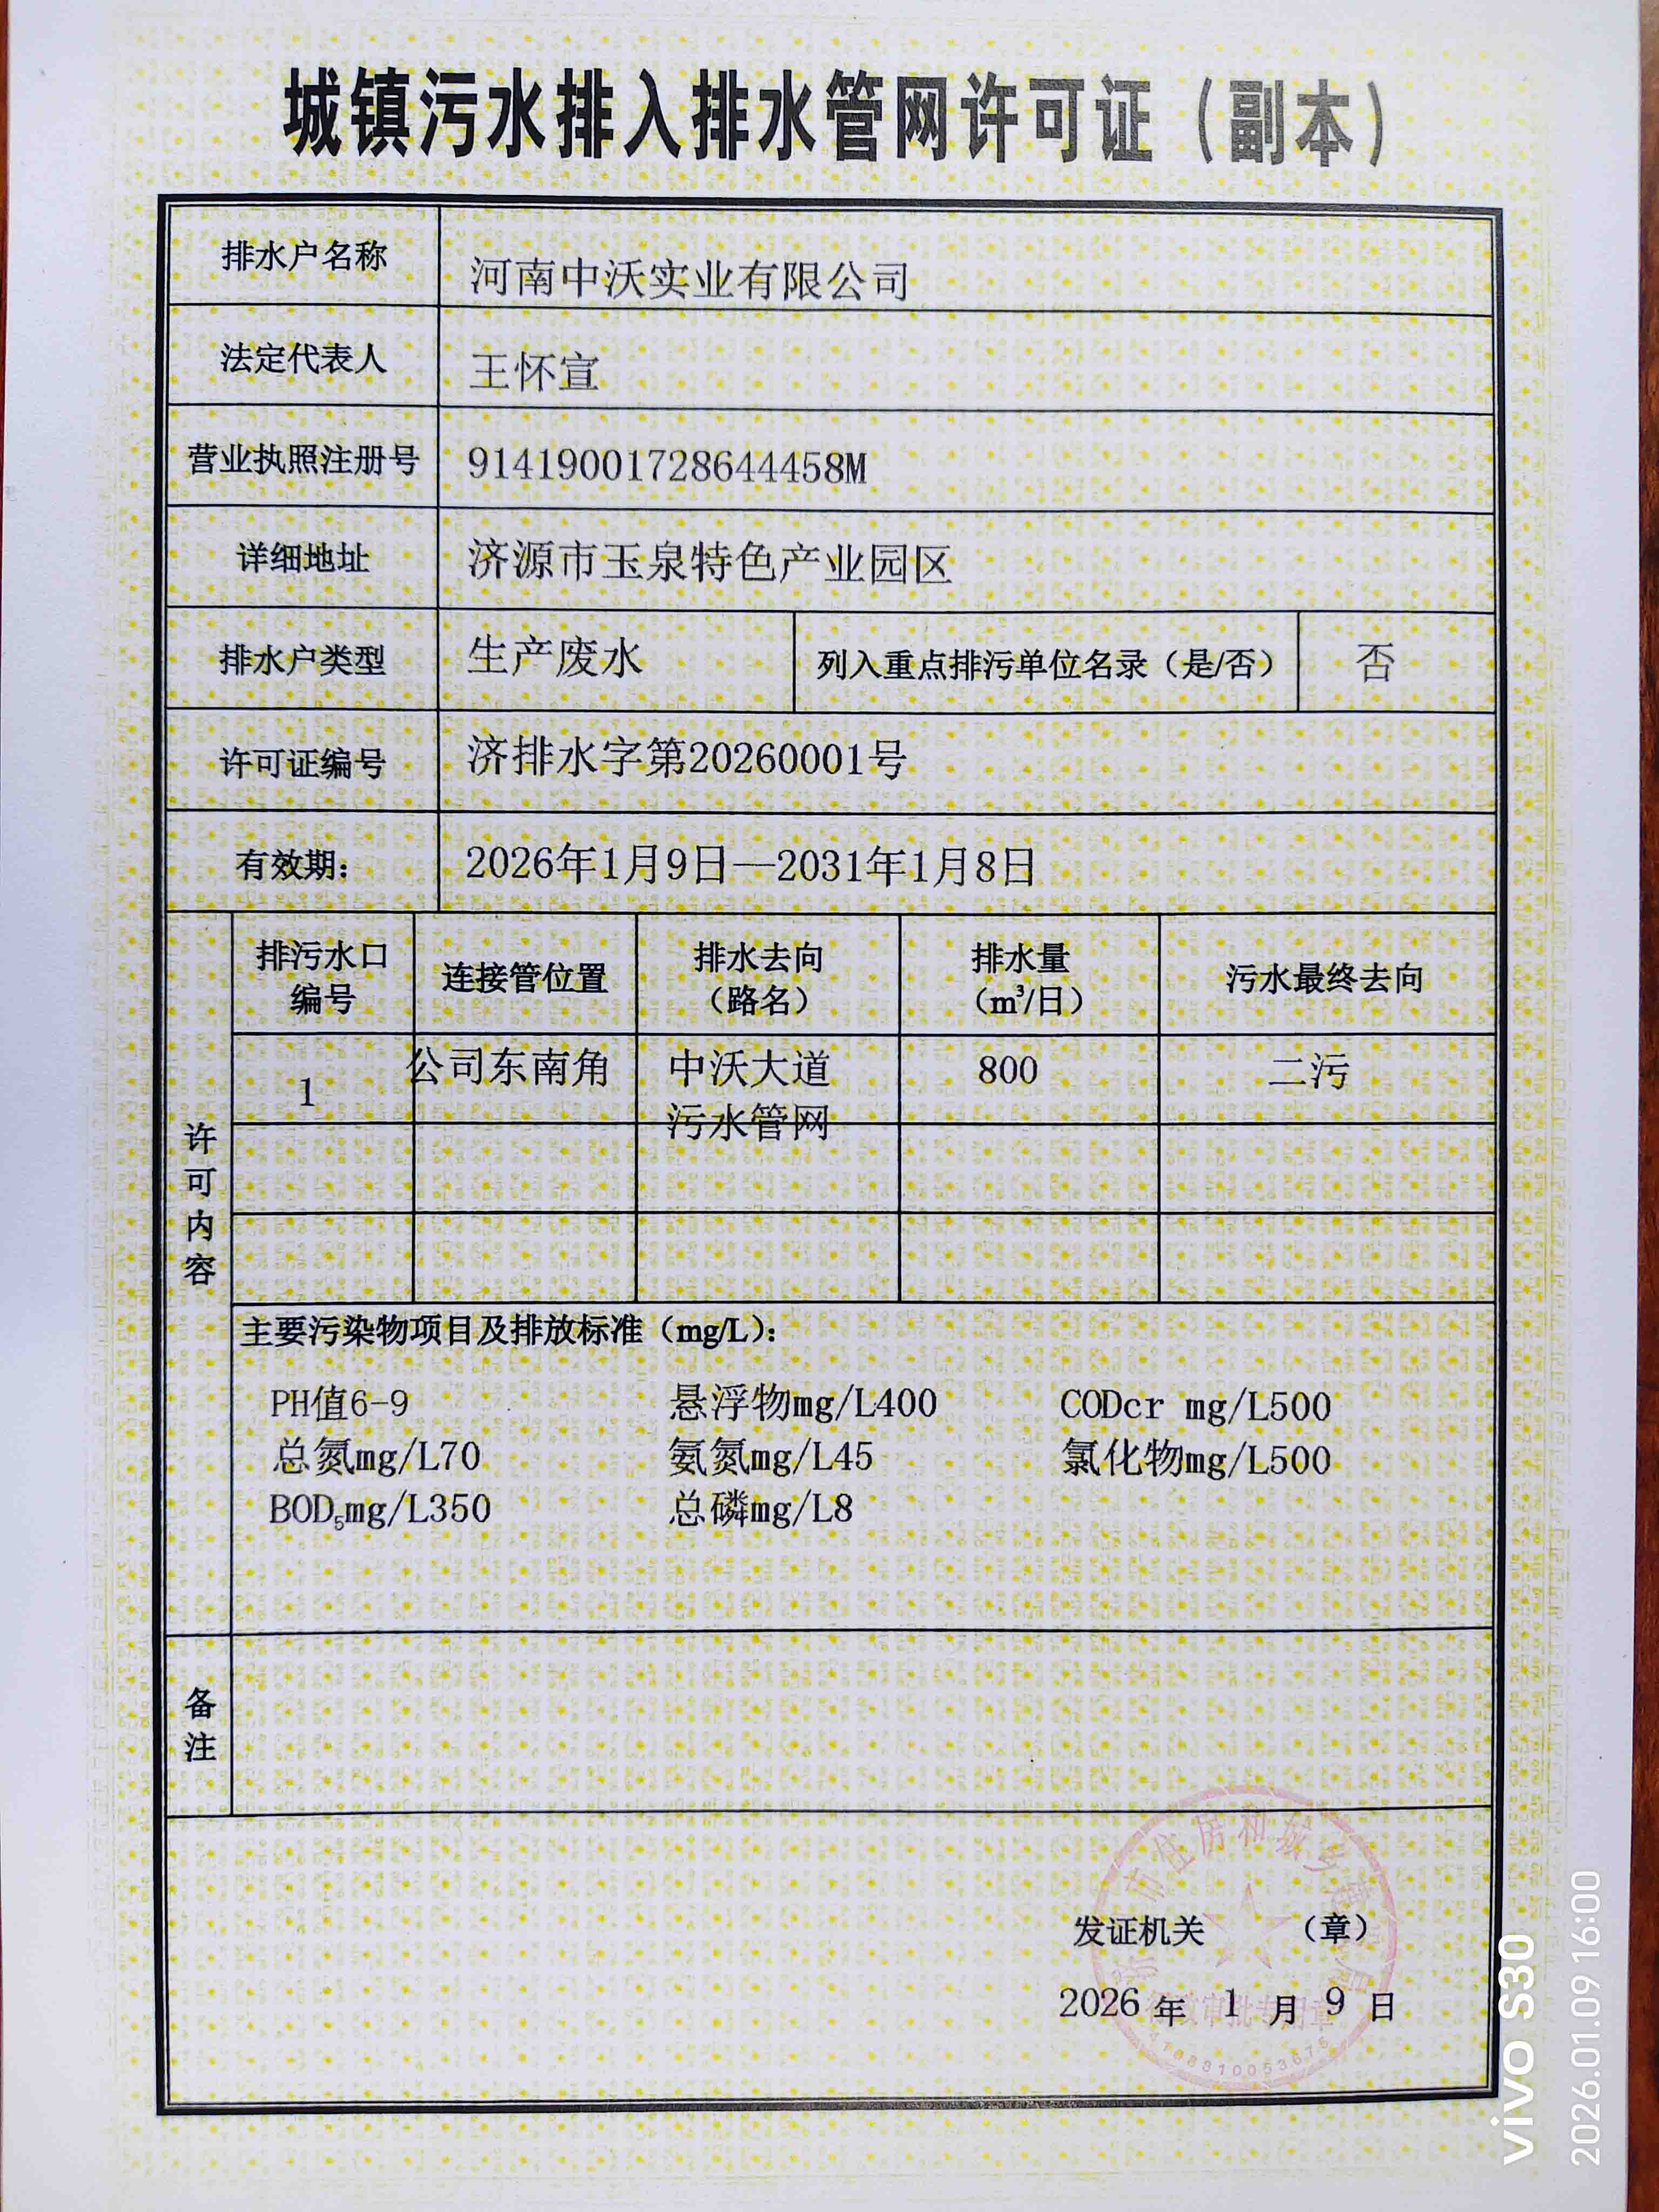 城镇污水排入排水管网许可证（副本）
排水户名称 河南中沃实业有限公司
法定代表人 王怀宣
营业执照注册号 91419001728644458M
详细地址 济源市玉泉特色产业园区
排水户类型 生产废水 列入重点排污单位名录（是/否） 否
许可证编号 济排水字第20260001号
有效期： 2026年1月9日—2031年1月8日
许可内容
排污水口编号 连接管位置 排水去向（路名） 排水量（m³/日） 污水最终去向
1 公司东南角 中沃大道 800 二污
污水管网
主要污染物项目及排放标准（mg/L）：
PH值6-9 悬浮物mg/L400 CODcr mg/L500
总氮mg/L70 氨氮mg/L45 氯化物mg/L500
BOD₅mg/L350 总磷mg/L8
备注
市住房和城乡建
发证机关 （章）
2026 年 1 月 9 日
审批专用章
vivo S30
2026.01.09 16:00